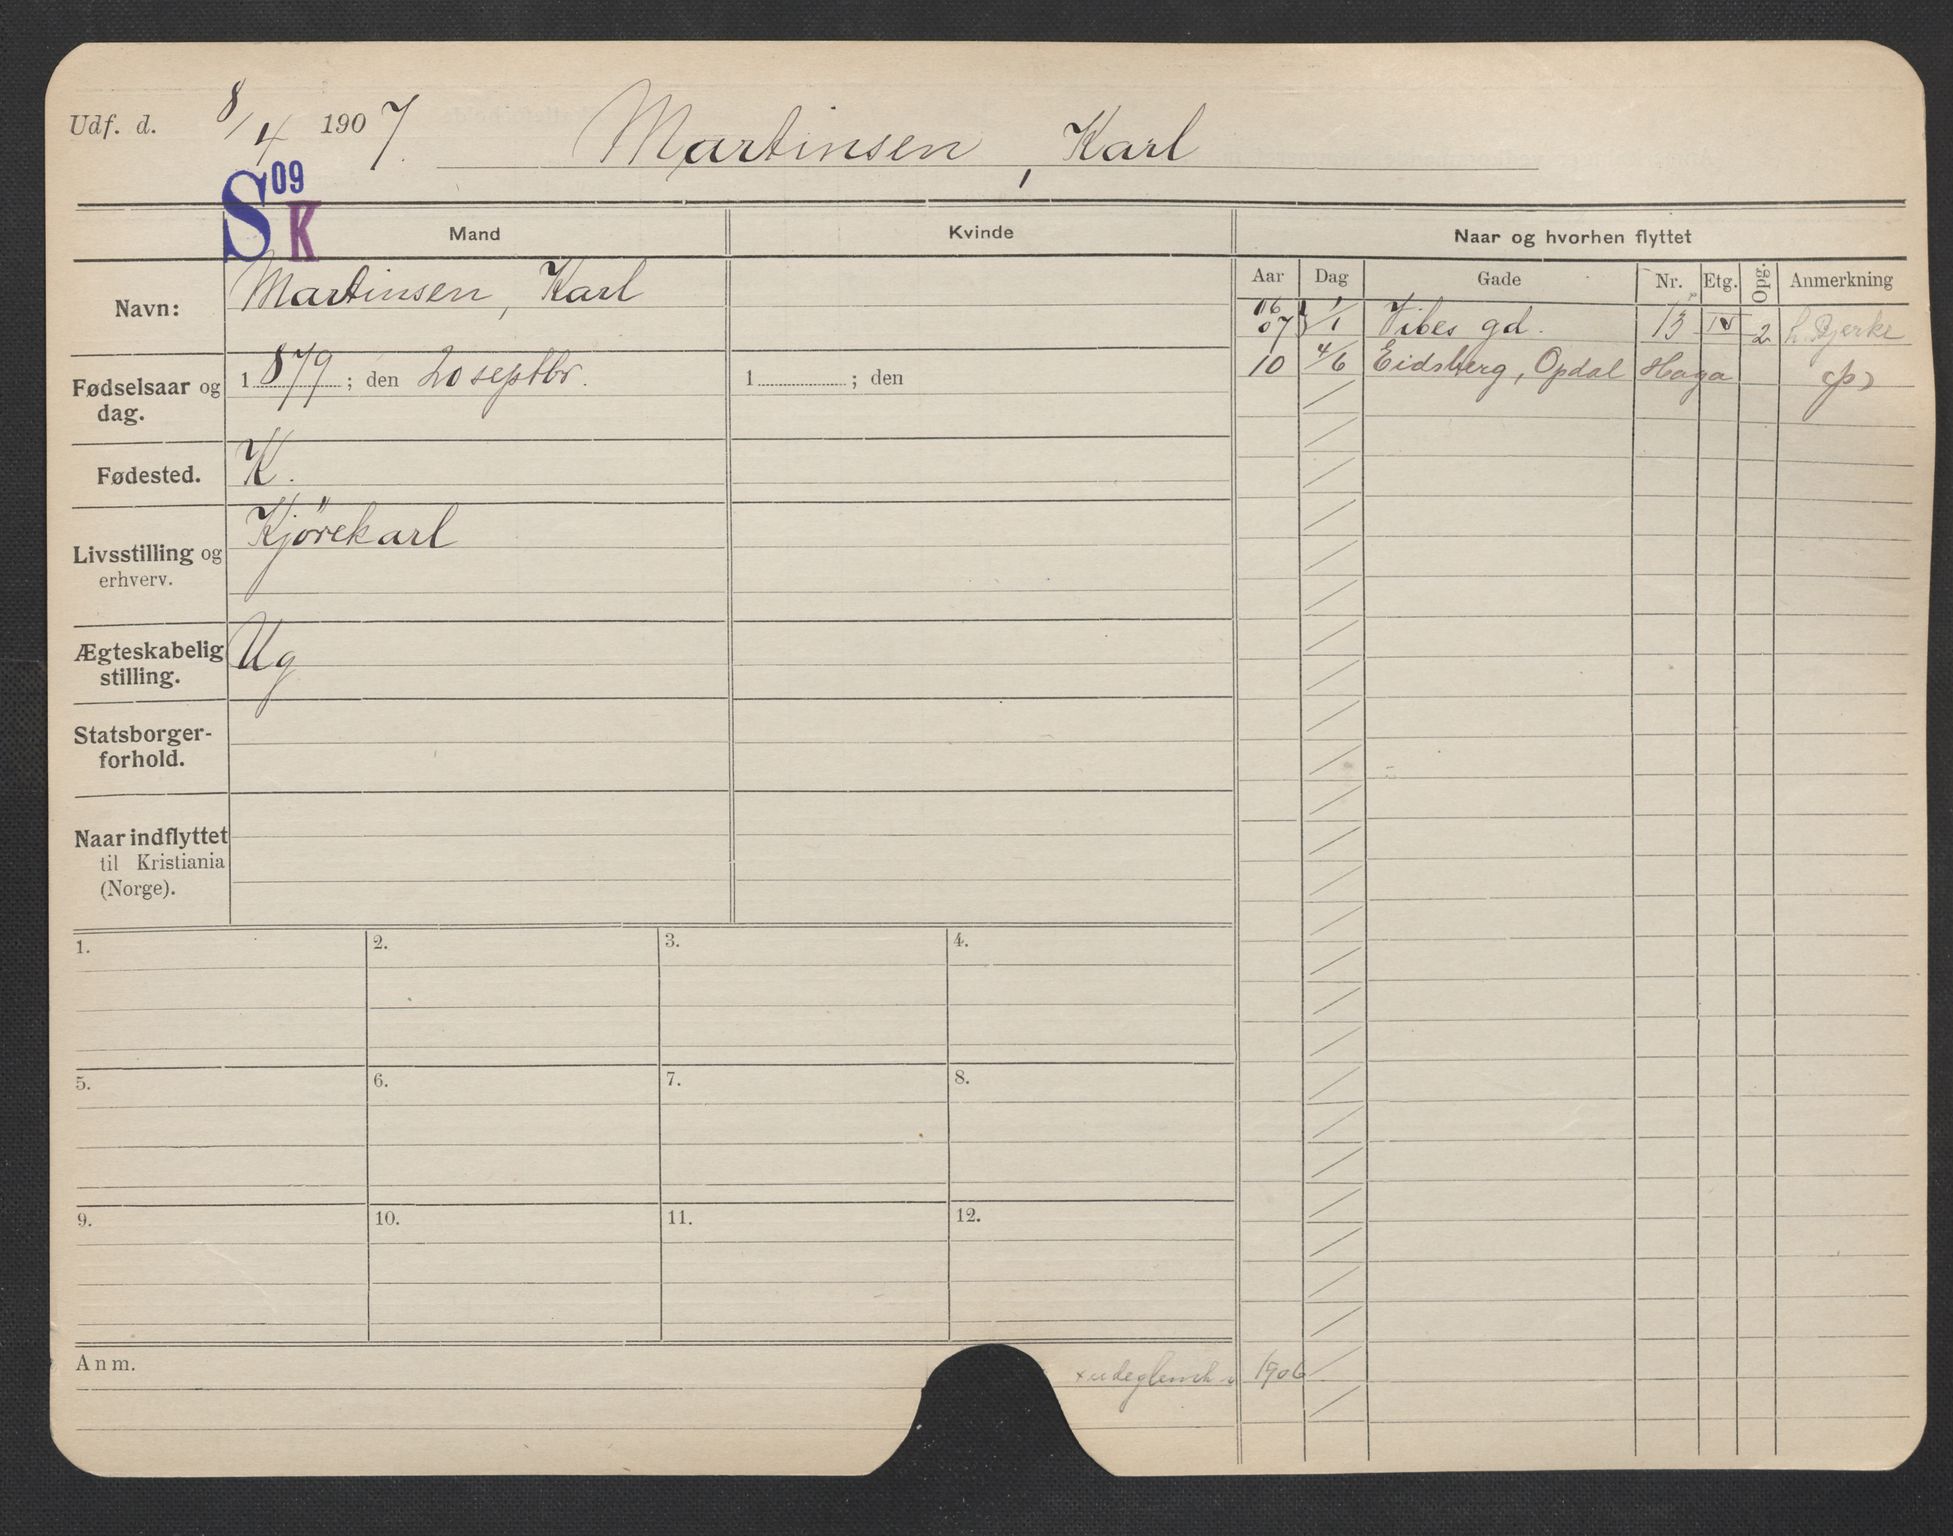 Udf. d. 8/4 1907. Martinsen, Karl
S 09 K
Mand Kvinde Naar og hvorhen flyttet
Aar Dag Gade Nr. Etg. Opg. Anmerkning
Navn: Martinsen, Karl
06
07 1/1 Vibes gd. 13 IV 2 h. Bjerke
10 4/6 Eidsberg, Opdal Haga (p)
Fødselsaar og dag. 1879; den 20 septbr. 1 ; den
Fødested. K.
Livsstilling og erhverv. Kjørekarl
Ægteskabelig stilling. Ug
Statsborger-
forhold.
Naar indflyttet
til Kristiania
(Norge).
1. 2. 3. 4.
5. 6. 7. 8.
9. 10. 11. 12.
Anm. 1906